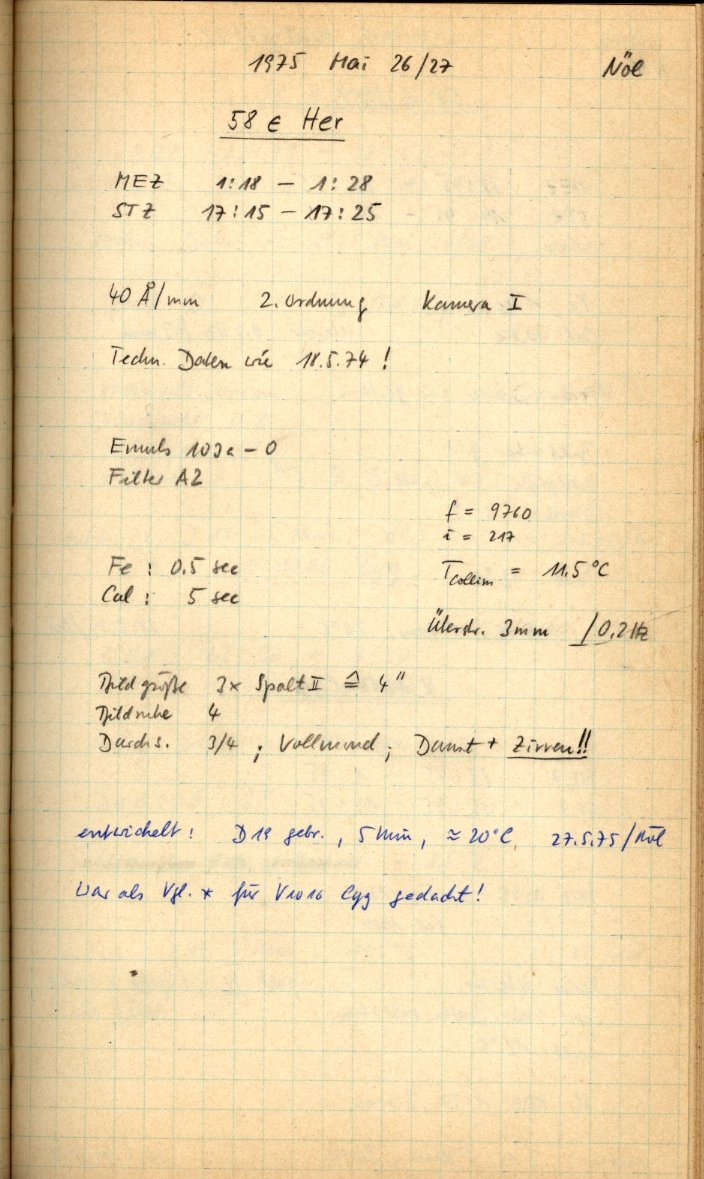 1975 Mai 26/27 Nöl
58 ε Her
MEZ 1:18 – 1:28
STZ 17:15 – 17:25
40 Å/mm 2. Ordnung Kamera I
Techn. Daten wie 18.5.74 !
Emuls 103a – O
Filter A2
f = 9760
i = 217
Fe : 0.5 sec
T Collim = 11.5 °C
Cal : 5 sec
Überstr. 3mm / 0.2 Hz
Bildgröße 3x Spalt II ≙ 4"
Bildruhe 4
Durchs. 3/4 ; Vollmond ; Dunst + Zirren!!
entwickelt: D19 gebr., 5 Min, ≈ 20°C, 27.5.75/Nöl
War als Vgl. * für V1016 Cyg gedacht!